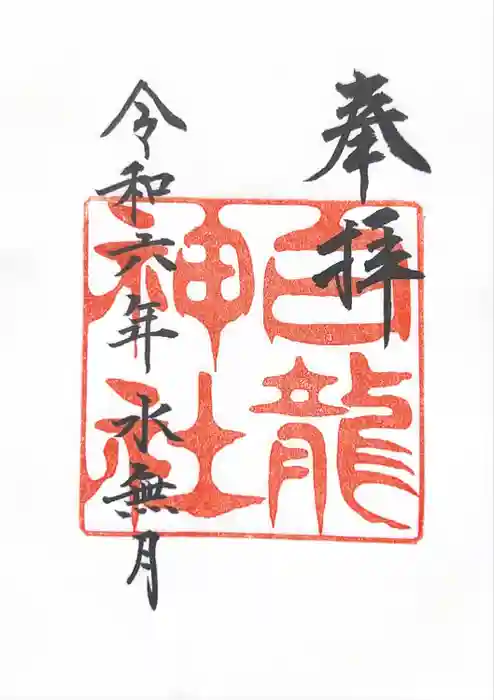 奉拝
白龍
神社
令和六年 水無月